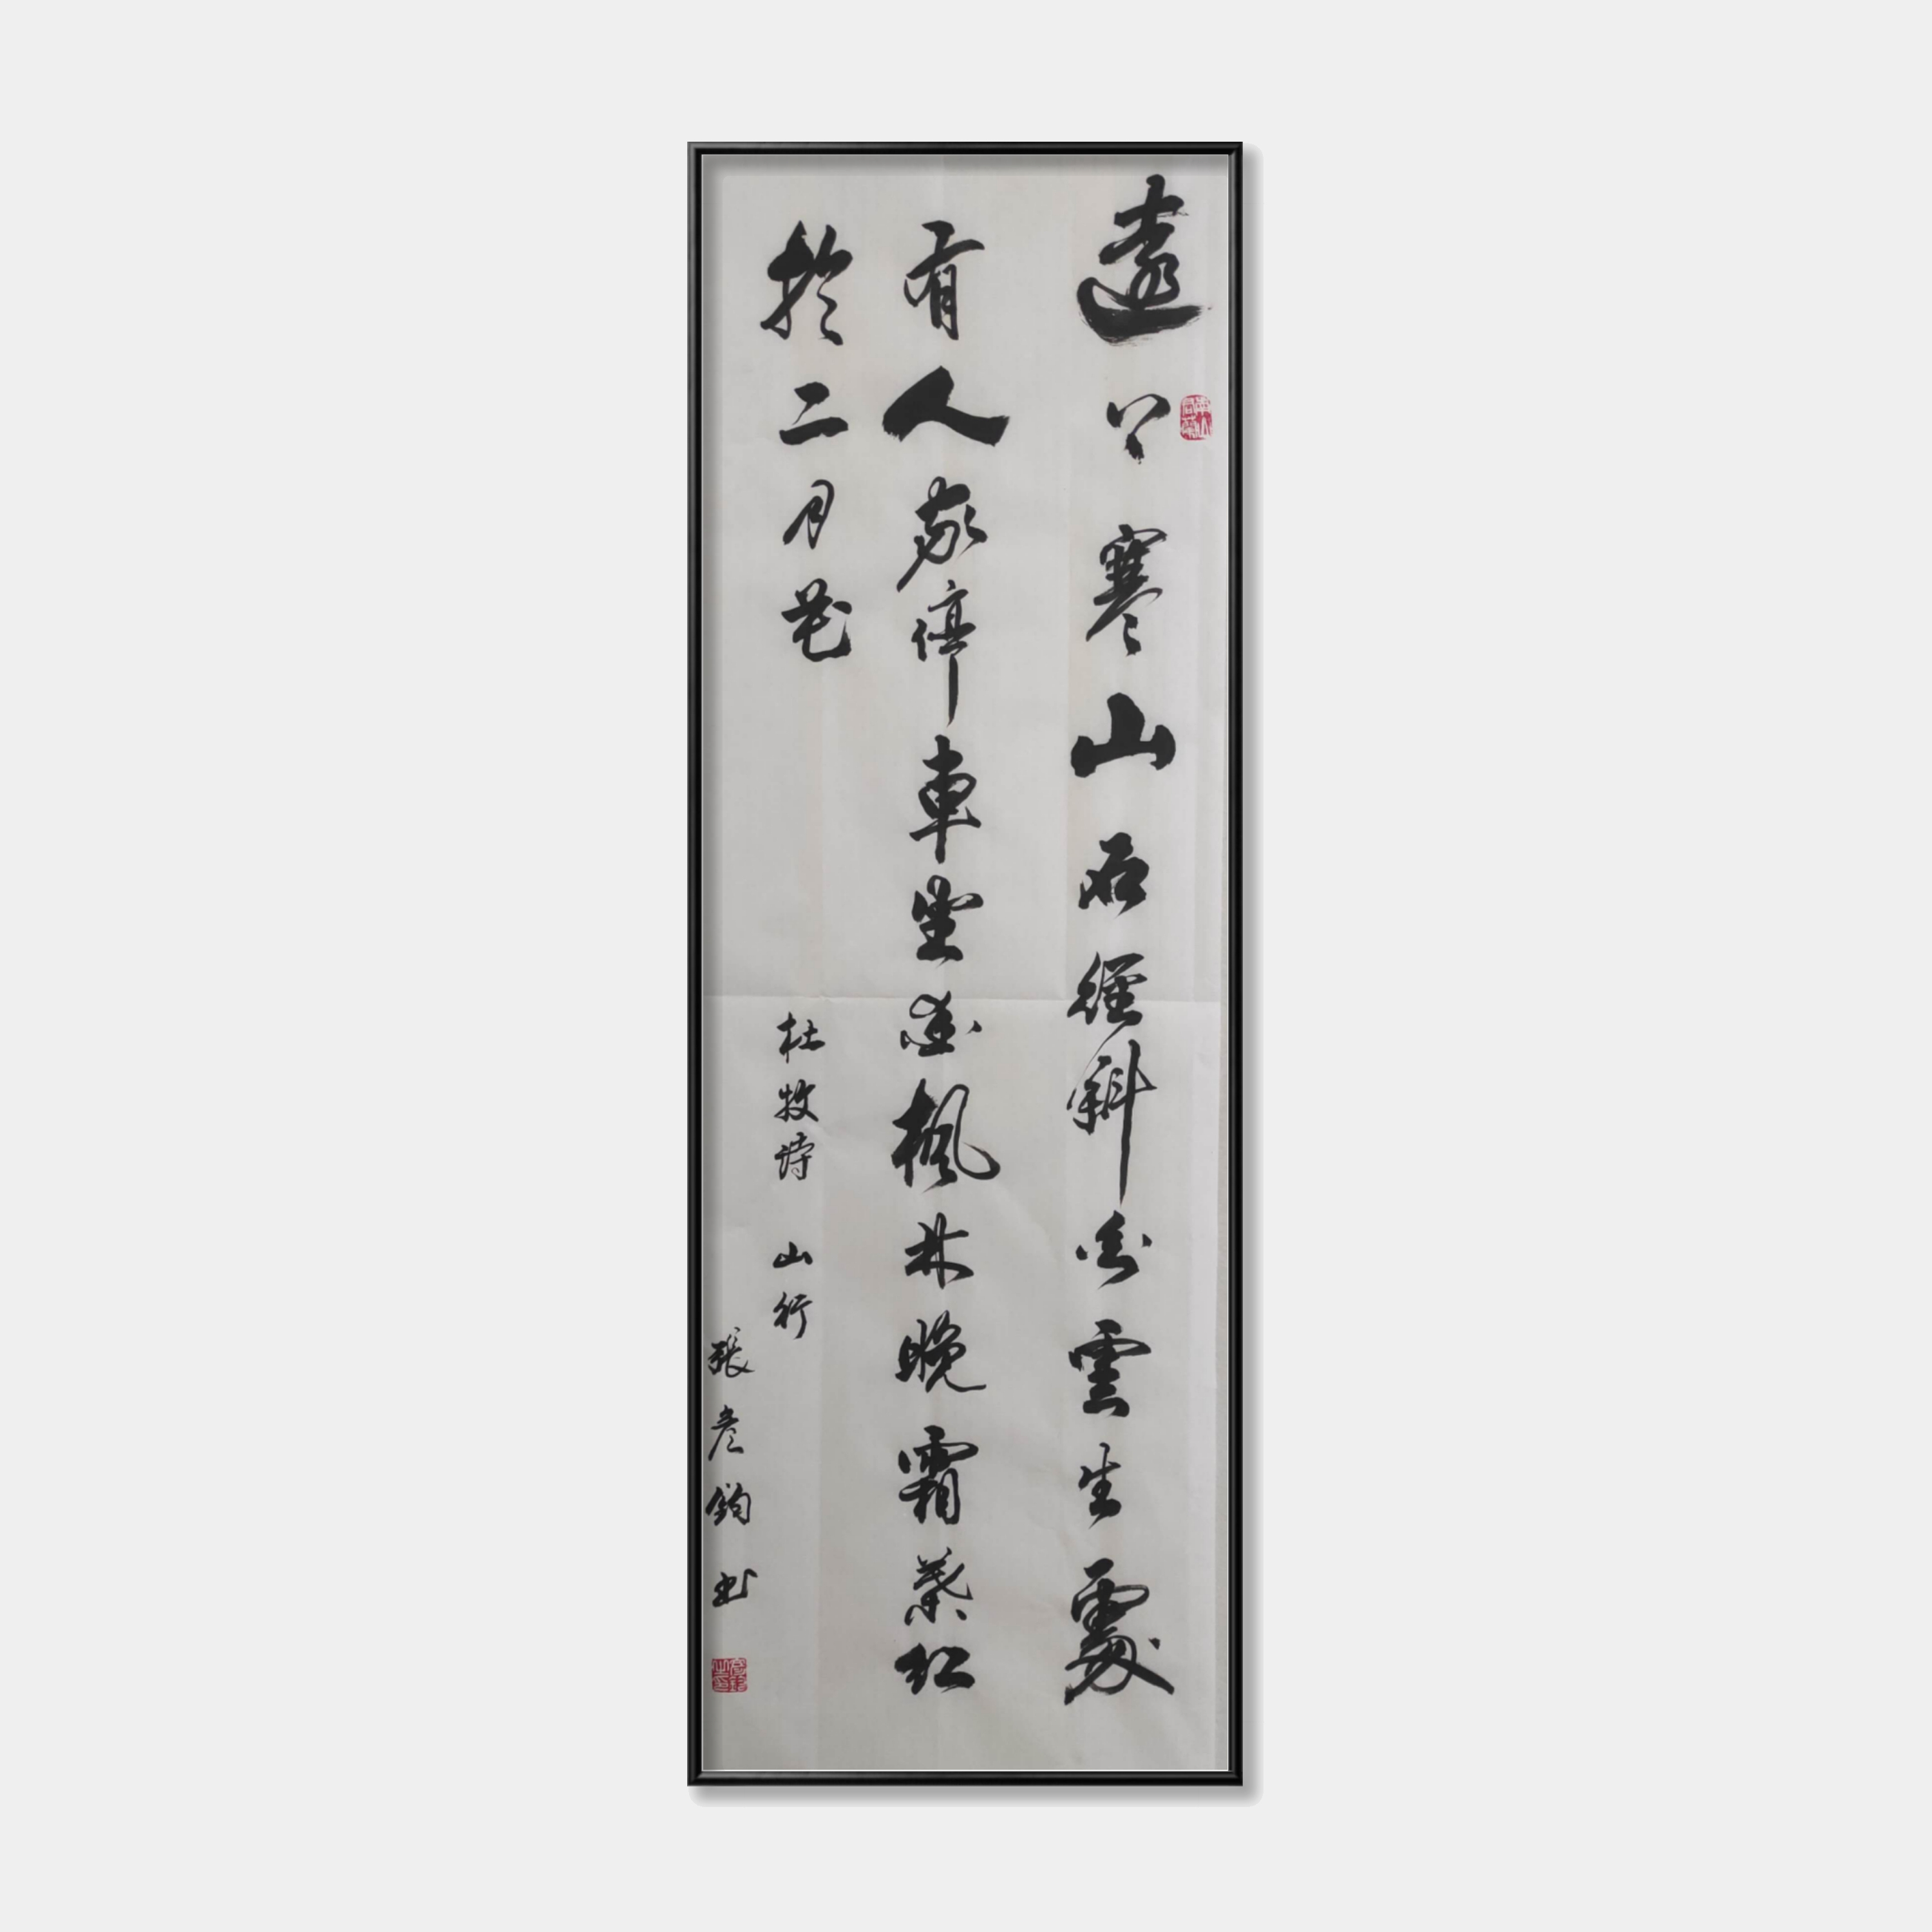 遠上寒山石徑斜白雲生處
有人家停車坐愛楓林晚霜葉紅
於二月花
杜牧詩 山行
張彥鈞书